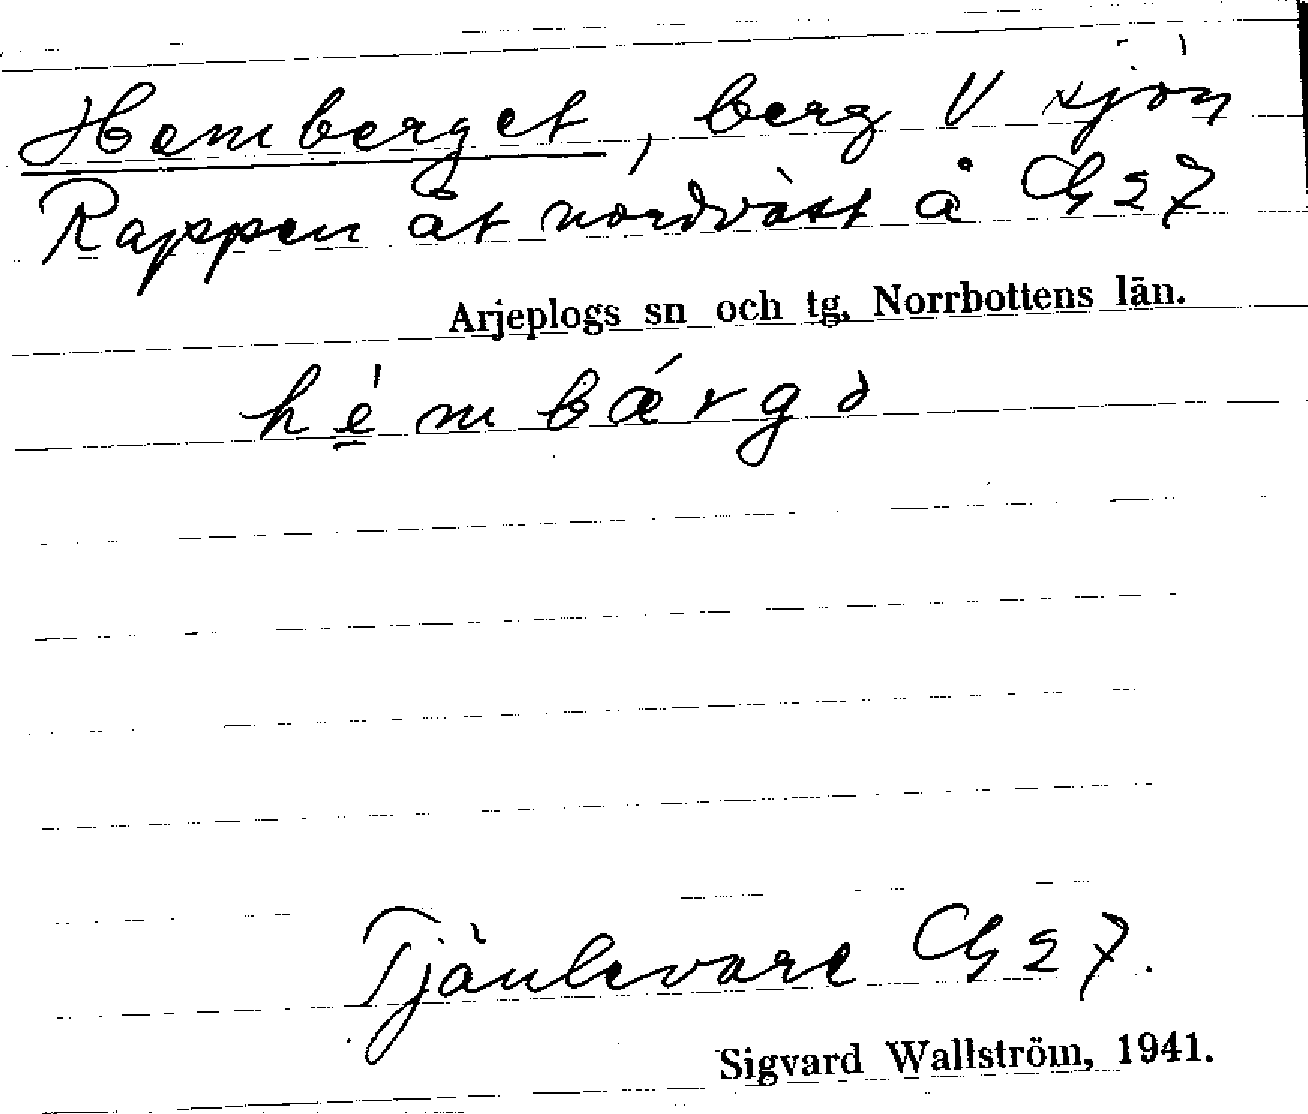 Hemberget, berg V sjön
Rappen åt nordväst å G27
Arjeplogs sn och tg, Norrbottens län.
hé̱mbǽrgə
Tjäulevare G27.
Sigvard Wallström, 1941.